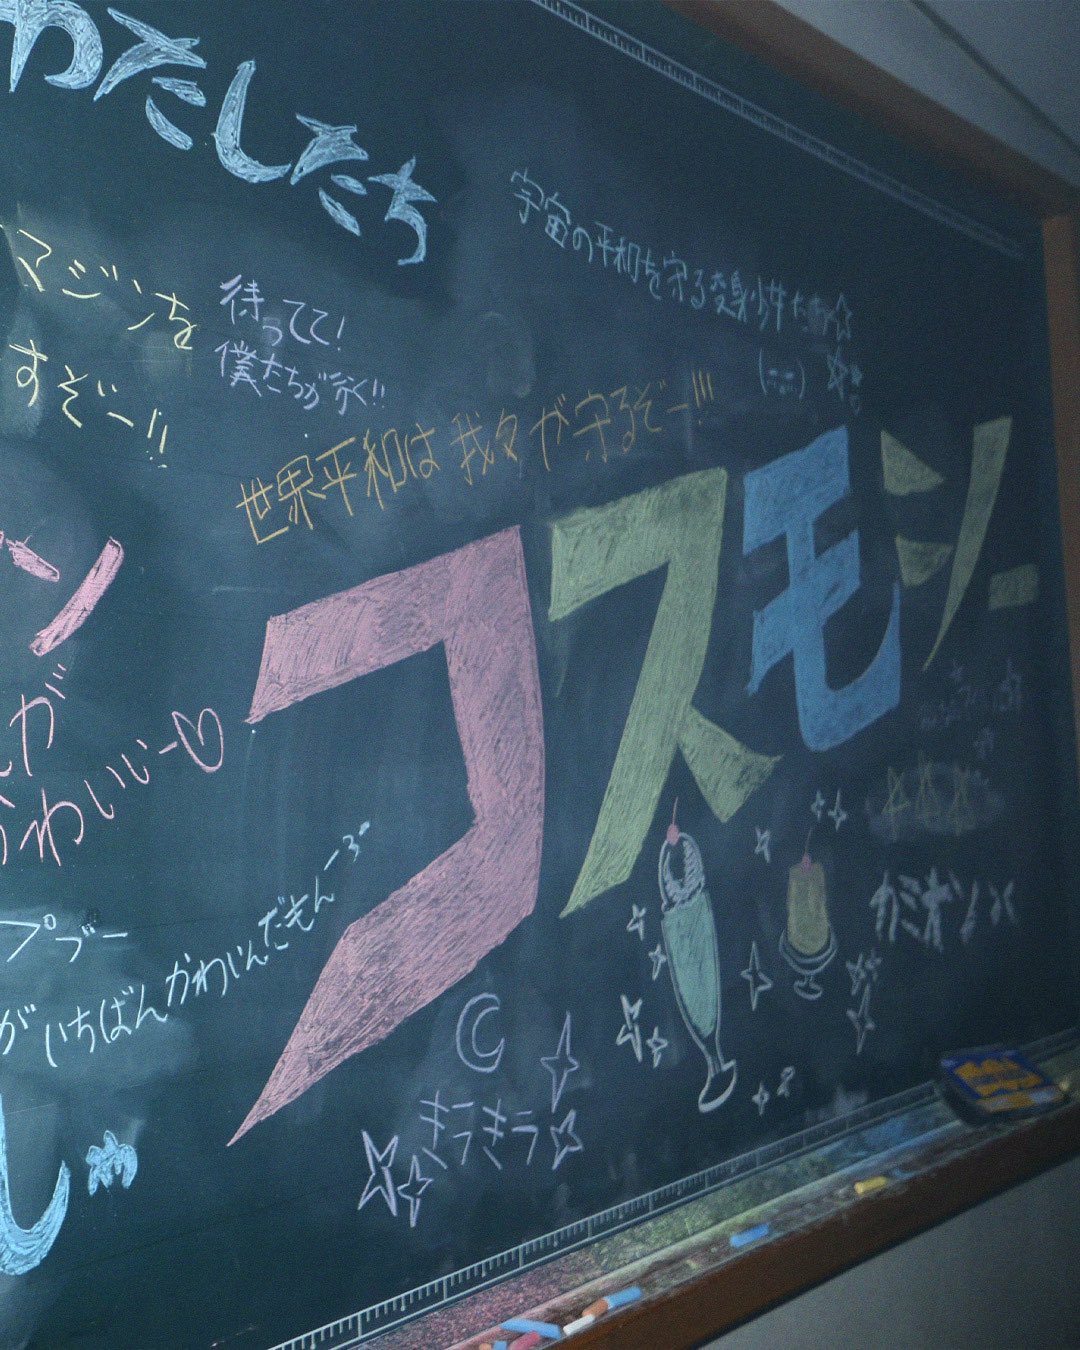 わたしたち
宇宙の平和を守る変身少女たち☆
マジンを
すぞー!!
待ってて!
僕たちが行く!!
世界平和は我々が守るぞー!!!
コスモン
ン
が
かわいいー♡
プブー
がいちばんかわいんだもんーぷ
キラキラ
し